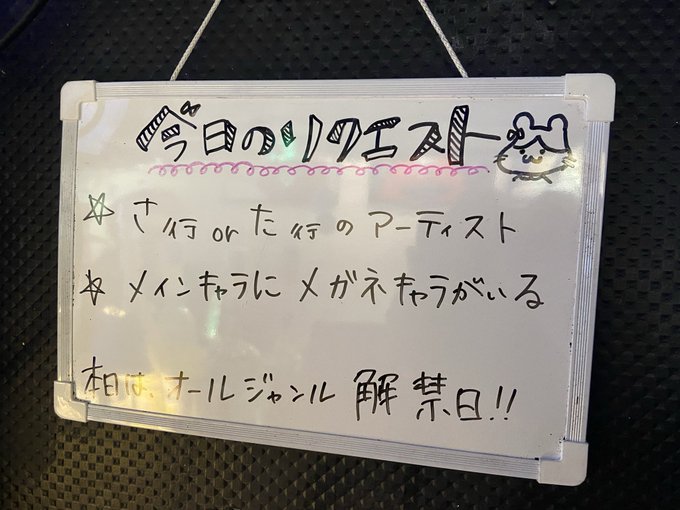 今日のリクエスト
☆ さ行 or た行のアーティスト
☆ メインキャラにメガネキャラがいる
本日は、オールジャンル解禁日!!